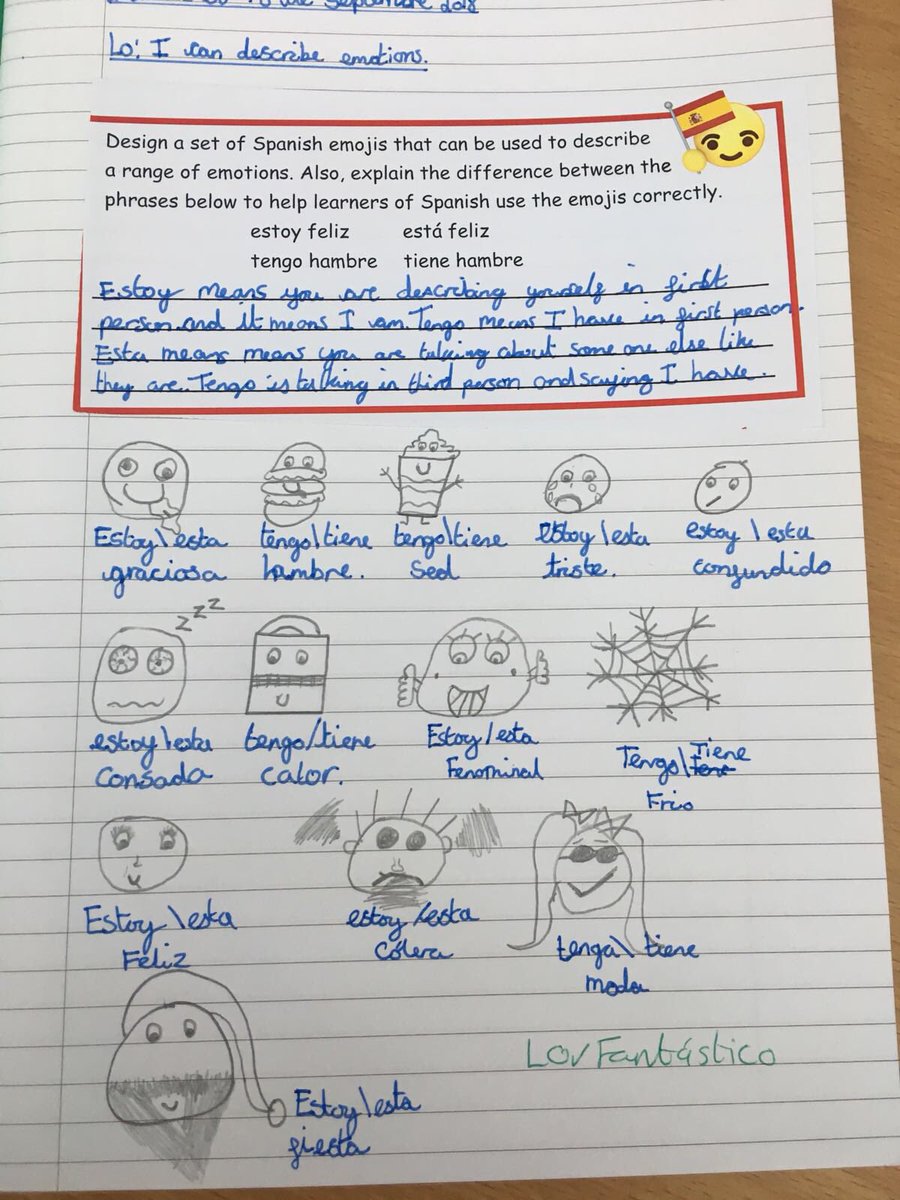 Septembre 2018
Lo: I can describe emotions.
Design a set of Spanish emojis that can be used to describe
a range of emotions. Also, explain the difference between the
phrases below to help learners of Spanish use the emojis correctly.
estoy feliz está feliz
tengo hambre tiene hambre
Estoy means you are describing yourself in first
person and it means I am. Tengo means I have in first person.
Esta means means you are talking about some one else like
they are. Tengo is talking in third person and saying I have.
Estoy\esta tengo\tiene tengo\tiene estoy\esta estoy\esta
graciosa hambre. Sed triste. confundido
zzz
estoy\esta tengo/tiene Estoy/esta Tengo\Tiene
Consada calor. Fenominal Frio
Estoy\esta estoy/esta tenga\tiene
Feliz Cólera moda
LOV Fantástico
Estoy\esta
fiesta